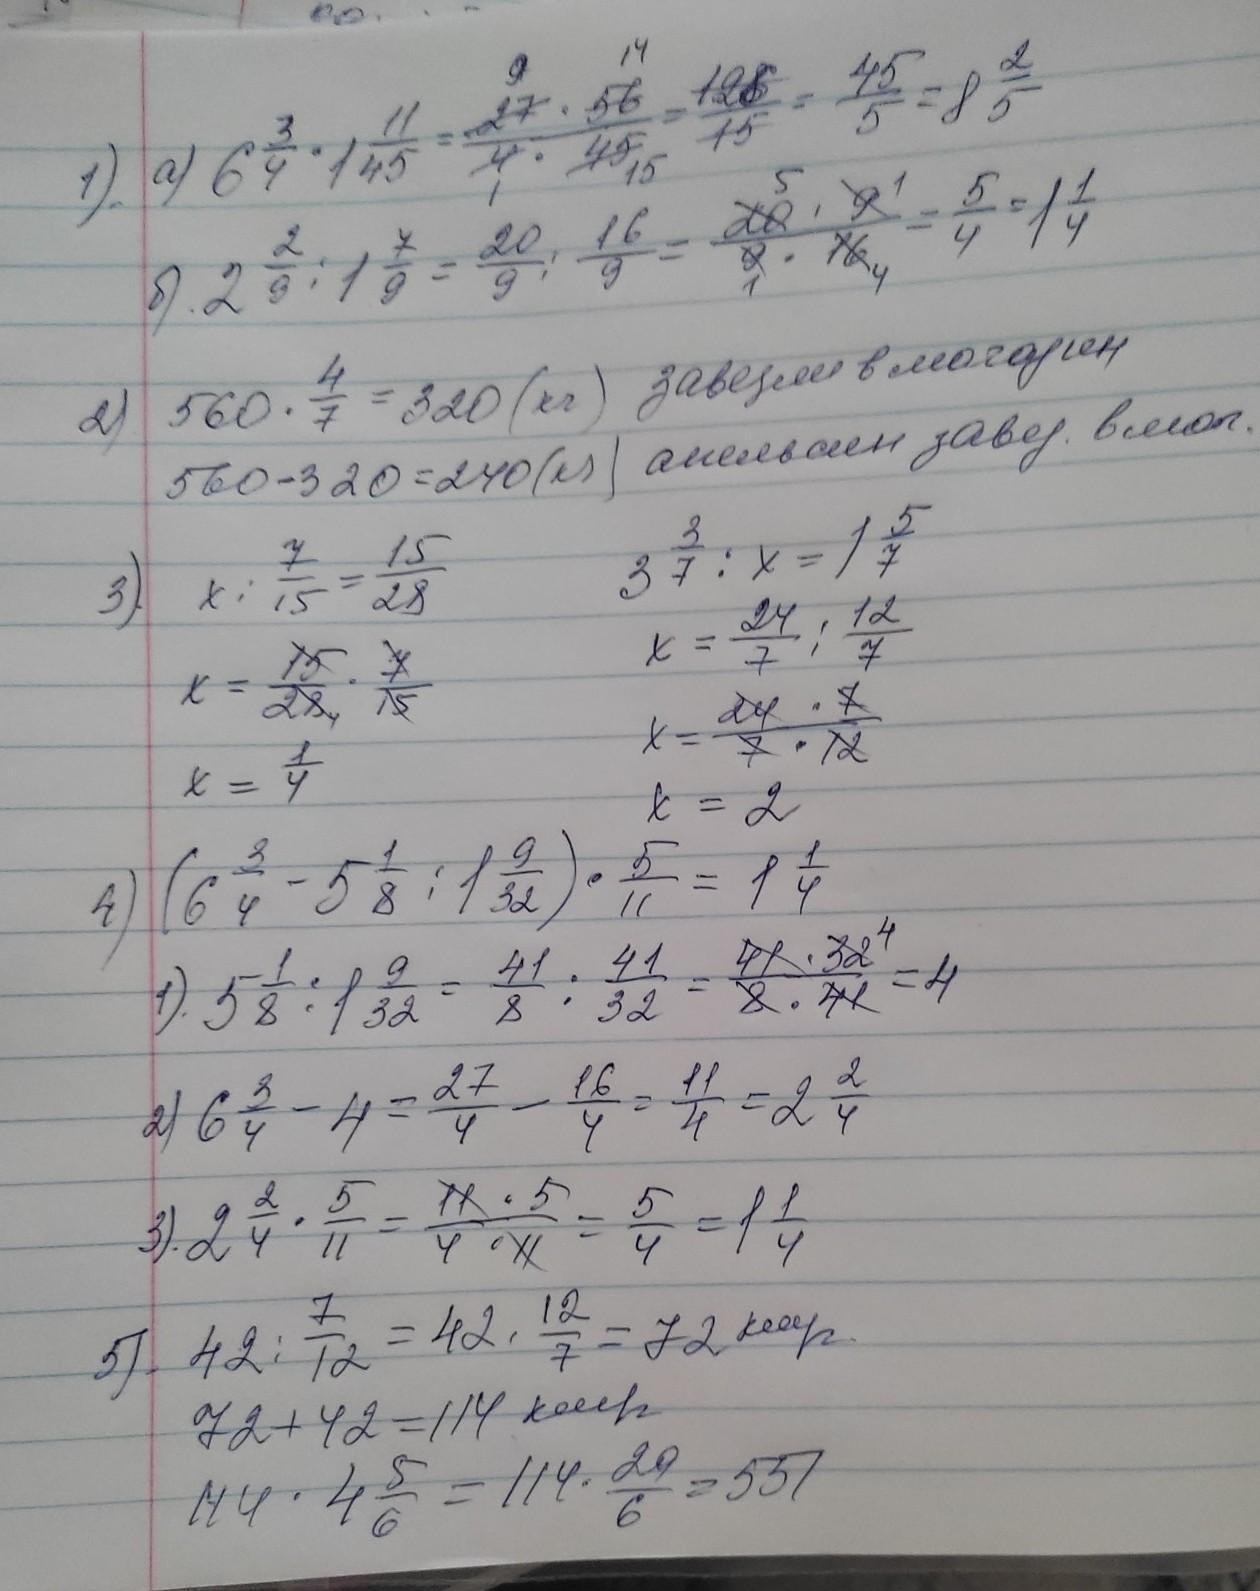 1). а) 6 3/4 · 1 11/45 = 27 9 · 56 14 / 4 1 · 45 15 = 126/15 = 45/5 = 8 2/5
б). 2 2/9 : 1 7/9 = 20/9 : 16/9 = 20 5 · 9 1 / 9 1 · 16 4 = 5/4 = 1 1/4
2) 560 · 4/7 = 320 (кг) завезли в магазин
560 - 320 = 240 (кг) апельсин завез. в маг.
3). x : 7/15 = 15/28 3 3/7 : x = 1 5/7
x = 15/28 4 · 7/15 x = 24/7 : 12/7
x = 1/4 x = 24 · 7 / 7 · 12
x = 2
4) (6 3/4 - 5 1/8 : 1 9/32) · 5/11 = 1 1/4
1). 5 1/8 : 1 9/32 = 41/8 : 41/32 = 41 · 32 4 / 8 · 41 = 4
2) 6 3/4 - 4 = 27/4 - 16/4 = 11/4 = 2 2/4
3). 2 2/4 · 5/11 = 11 · 5 / 4 · 11 = 5/4 = 1 1/4
5). 42 : 7/12 = 42 · 12/7 = 72
72 + 42 = 114
114 · 4 5/6 = 114 · 29/6 = 551